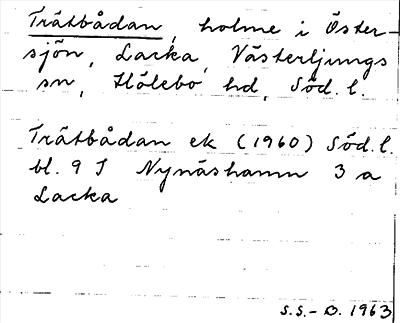 Trätbådan, holme i Öster-
sjön, Lacka, Västerljungs
sn, Hölebo hd, Söd. l.
Trätbådan ek (1960) Söd. l.
bl. 9 I Nynäshamn 3 a
Lacka
S.S.-B. 1963